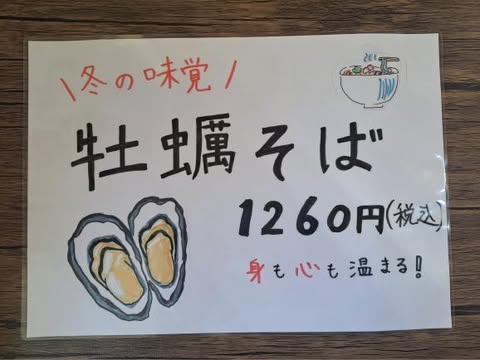 \冬の味覚/
牡蠣そば
1260円(税込)
身も心も温まる!